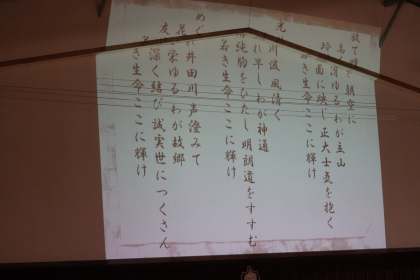 放て瞳 朝空に
高く冴ゆる わが立山
面に映じ 正大士気を抱く
き生命 ここに輝け
光 川波 風清く
れ早し わが神通
純胸をひたし 明朗道をすすむ
若き生命 ここに輝け
めぐ 井田川 声澄みて
花 栄ゆる わが故郷
友 深く結び 誠実世につくさん
き生命 ここに輝け